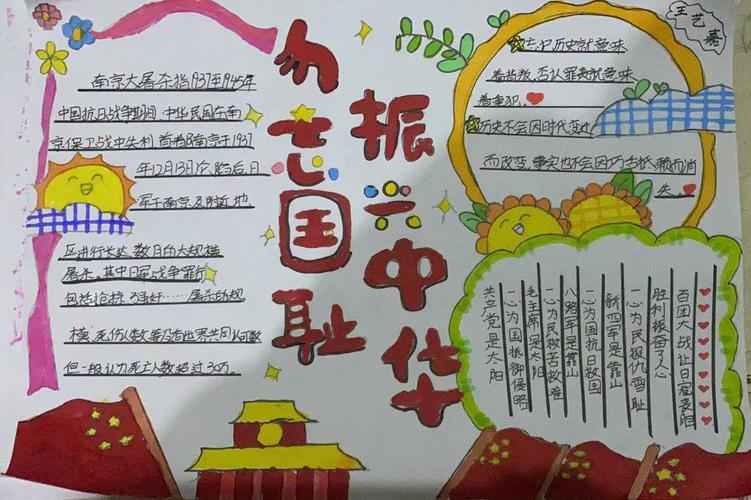 勿忘国耻
振兴中华
王艺嘉
南京大屠杀指1937至1945年
中国抗日战争期间，中华民国在南
京保卫战中失利，首都南京于1937
年12月13日沦陷后，日
军于南京及附近地
区进行长达数日的大规模
屠杀，其中日军战争罪行
包括抢掠、
模，死伤人数
但一般认为死亡人数超过30万。
忘记历史就意味
着背叛，否认罪责就意味
着重犯。
历史不会因时代变迁
而改变，事实也不会因巧舌抵赖而消
失。
百团大战让日寇丧胆
胜利振奋了人心
一心为民报仇雪耻
新四军是靠山
一心为国抗日救国
八路军是靠山
一心为民救苦救难
毛主席是太阳
一心为国抵御侵略
共产党是太阳